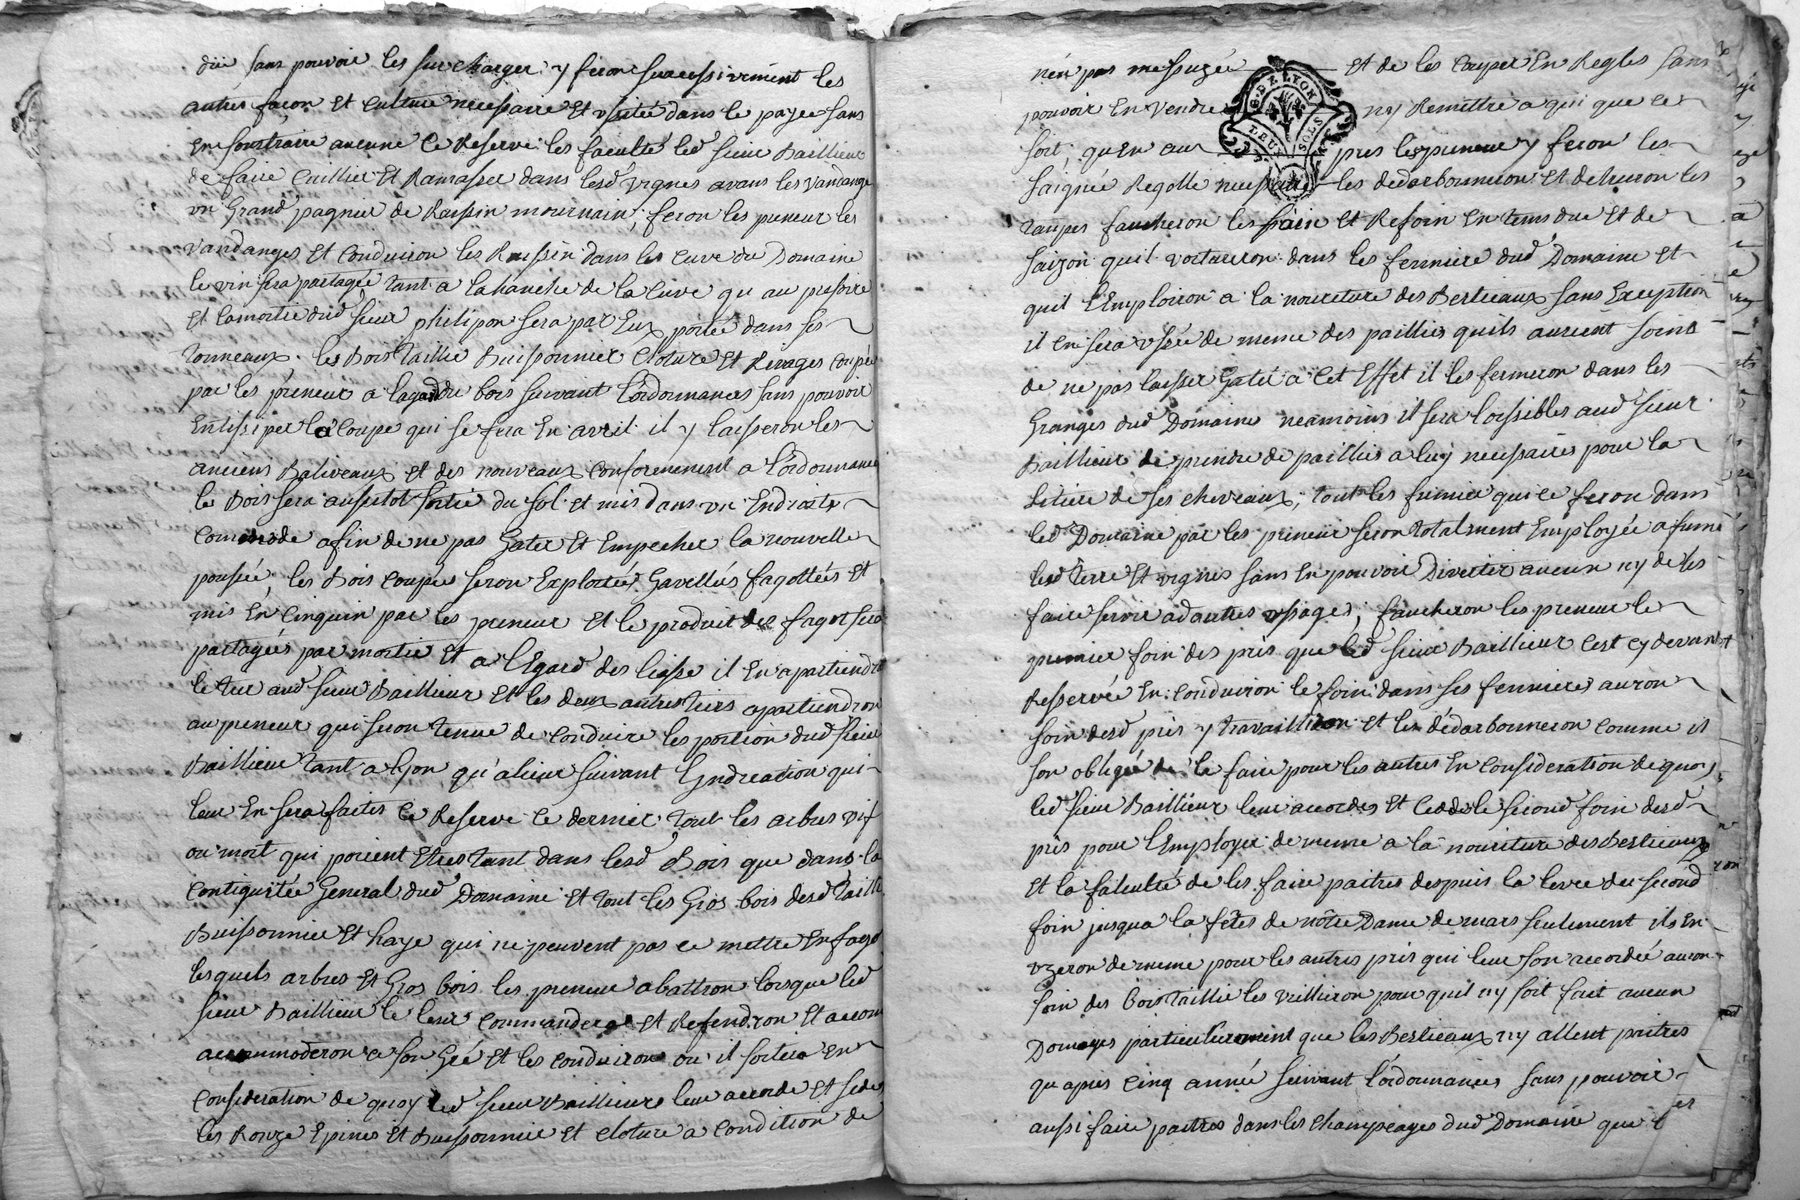 due sans pouvoir les surcharger, y feron successivement les
autres façon Et Culture necessaire Et usitée dans le paÿs sans
En soustraire aucune Ce Reserve les faculté led sieur Baillieur
de faire Cuillier Et Ramasser dans lesd vignes avans les vandange
un Grand pagnier de Raissin mournain; feron les preneur les
vandanges Et Conduiron les Raissin dans les cuve du Domaine
le vin sera partagée tant a la hanche de la Cuve qu au presoire
Et la moitié dud sieur philipon sera par Eux portée dans ses
Tonneaux. les Bois Taillie Buissonnier Cloture Et Rivages Coupée
par les preneur a la gardu bois suivant l'ordonnances sans pouvoir
Entissiper la Coupe qui se fera En avril il y laisseron les
anciens Baliveaux et des nouveaux Conforement a l'ordonnance
le Bois sera aussitot sortie du sol et mis dans un Endroits
Commode afin de ne pas Gater Et Empecher la nouvelle
poussée; les Bois Coupée seron Exploitée Gavellés fagottées Et
mis En Cinquin par les preneur Et le produit des fagot sera
partagées par moitie Et a l'Egard des liasse il En apartiendra
le tier aud sieur Baillieur Et les deux autres tiers apartiendron
au preneur qui seron tenue de Conduire les portion dud sieur
Baillieur tant a lyon qu'alieur suivant l'Indication qui
leur En sera faites Ce Reserve Ce dernier tout les arbres vif
ou mort qui pourent Etres tant dans lesd Bois que dans la
Contiguitée General dud Domaine Et tout les Gros bois desd Taillie
Buissonnier Et haye qui ne peuvent pas Ce mettre En fagot
lesquels arbres Et Gros bois les preneur abattron lorsque led
sieur Baillieur le leur Commandera Et Refendron Et accom
accommoderon a son Gré Et les Conduiron ou il sortira En
Consideration de quoy led sieur Baillieur leur accorde Et sede
les Ronze Epines Et Buissonnier Et Cloture a Condition de
nén pas messuzée Et de les Couper En Regles sans
pouvoir En vendre ny Remettre a qui que ce
soit; qu En aux pres les preneur y feron les
saignée Regolle necessaire les dedarbonneron Et detruiron les
taupes faucheron les foin Et Refoin En tems due Et de
saizon quil voitureron dans les fenniere dud Domaine Et
quil l'Emploiron a la nouriture des Bestieaux sans Exception
il En sera usée de meme des paillies quils aurient soins
de ne pas laisser Gater a Cet Effet il les fermeron dans les
Granges dud Domaine neamoins il sera loissibles aud sieur
Baillieur de prendre de paillies a luy necessaires pour la
Litiere de ses chevreaux; tout les fumier qui ce feron dans
led Domaine par les preneur seron totalment Employée a fumé
lesd Terre Et vignes sans En pouvoir Divertir aucun ny de les
faire servir a d'autres usages; faucheron les preneur le
premier foin des prés que led sieur Baillieur C'est cy devant
Resservée En Conduiron le foin dans ses fennieres auron
soin desd prés y travailliron Et les dédarbonneron Comme il
son obligée de le faire pour les autres En Consideration de quoy
led sieur Baillieur leur accordes Et Cede le second foin desd
prés pour l'Employer de meme a la nouriture des Bestieaux
Et la faculté de les faire paitres despuis la levée du second
foin jusqua la fêtes de nôtre Dame de mars seulement ils En
uzeron de meme pour les autres prés qui leur son accordée auron
soin des bois Taillie les veilliron pour quil ny soit fait aucun
Domages particulierement que les Bestieaux ny allent paitres
qu apres Cinq année suivant l'ordonnances sans pouvoir
aussi faire paitres dans les Champeages dud Domaine que l
G. DE LYON
DEUX SOLS